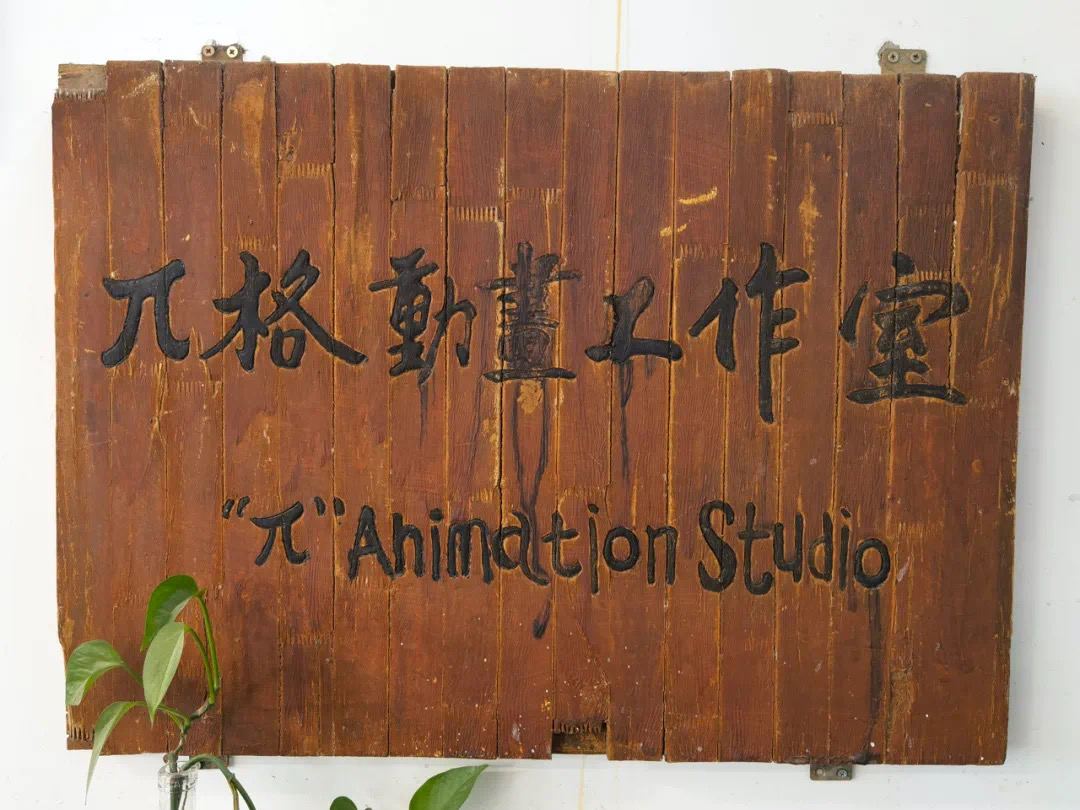 π格動畫工作室
“π”Animation Studio